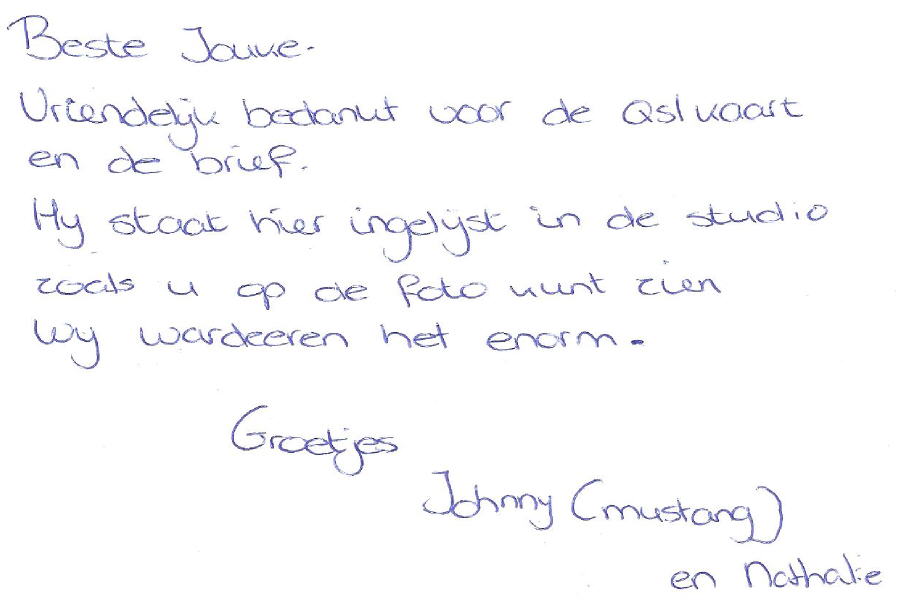 Beste Jouke.
Vriendelijk bedankt voor de Qslkaart
en de brief.
Hy staat hier ingelijst in de studio
zoals u op de foto kunt zien
Wy wardeeren het enorm.
Groetjes
Johnny (mustang)
en Nathalie